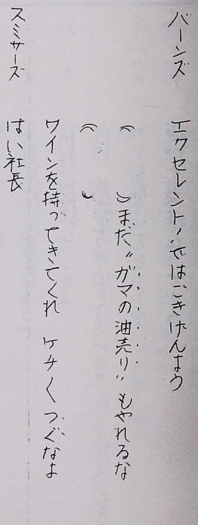 バーンズ　エクセレント！ではごきげんよう
（　）まだ“ガマの油売り”もやれるな
（　）
ワインを持ってきてくれ　ケチくつぐなよ
スミサーズ　はい社長